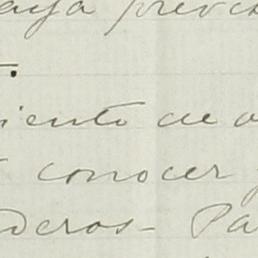 aya prev
iento de
conocer
deros - Pa